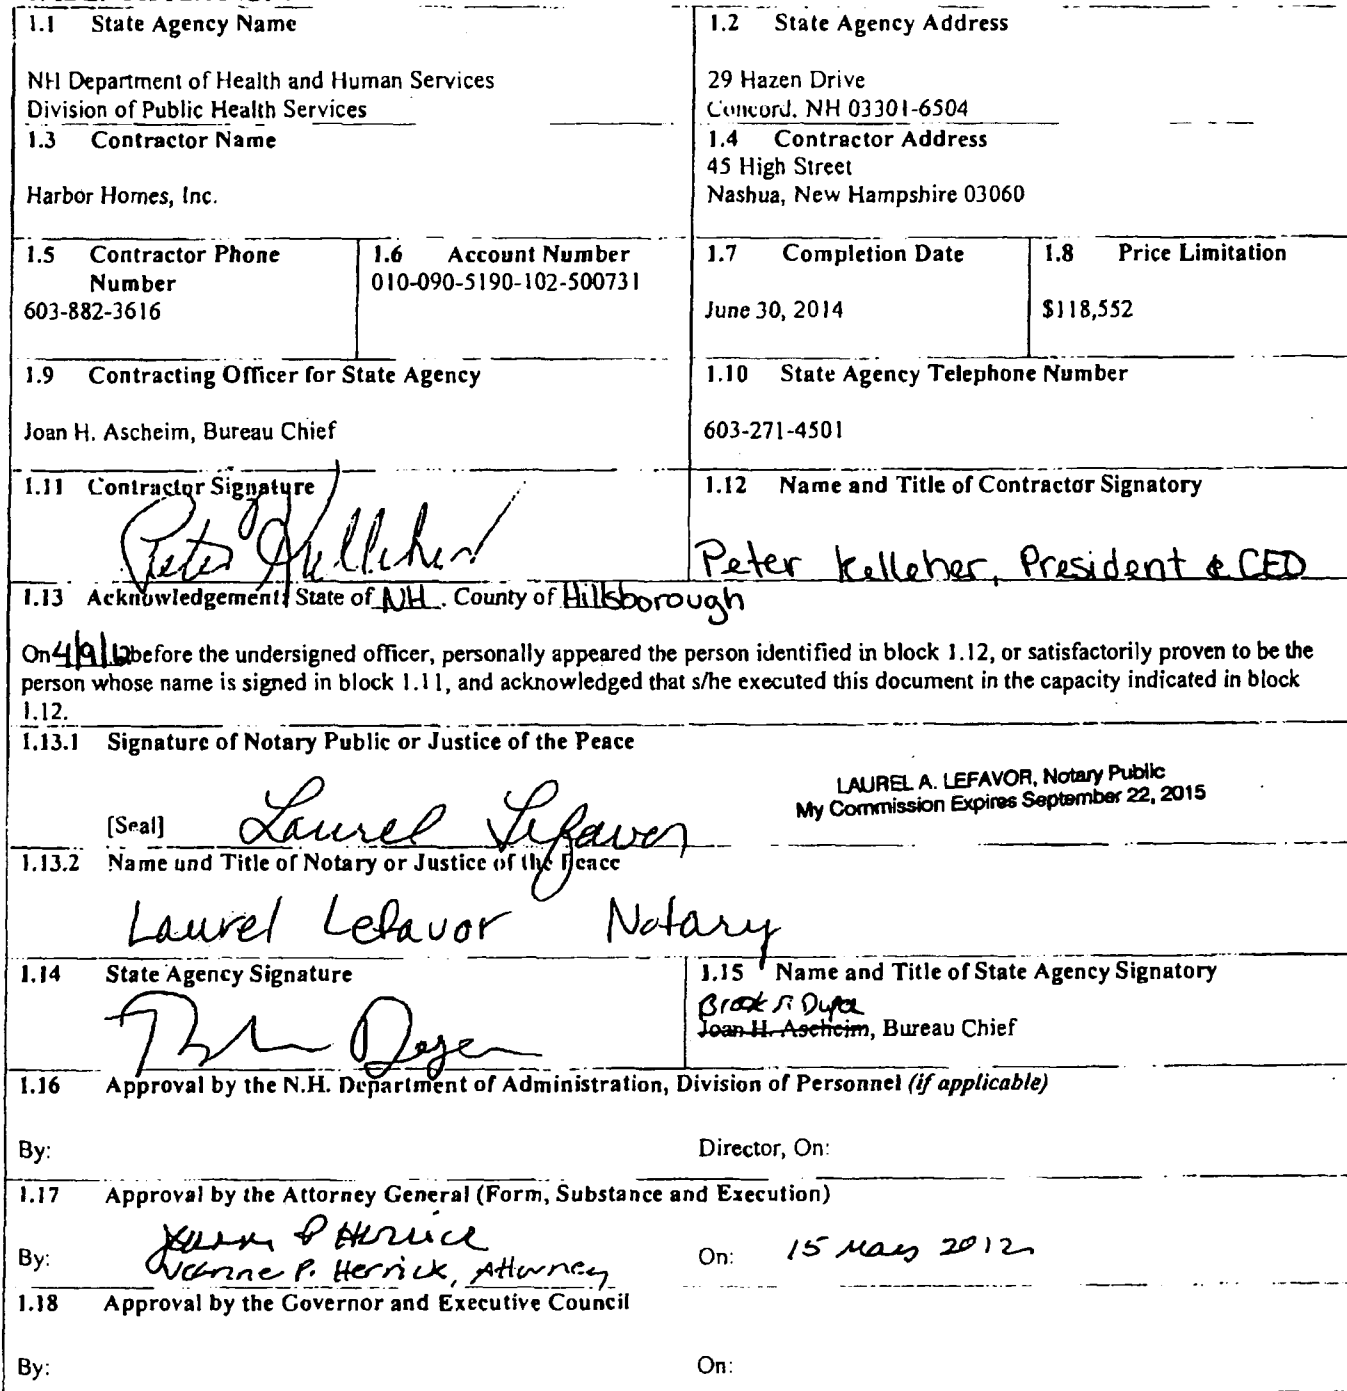 1.1 State Agency Name
1.2 State Agency Address
NH Department of Health and Human Services
Division of Public Health Services
29 Hazen Drive
Concord, NH 03301-6504
1.3 Contractor Name
1.4 Contractor Address
Harbor Homes, Inc.
45 High Street
Nashua, New Hampshire 03060
1.5 Contractor Phone
Number
603-882-3616
1.6 Account Number
010-090-5190-102-500731
1.7 Completion Date
June 30, 2014
1.8 Price Limitation
$118,552
1.9 Contracting Officer for State Agency
Joan H. Ascheim, Bureau Chief
1.10 State Agency Telephone Number
603-271-4501
1.11 Contractor Signature
Peter Kelleher
1.12 Name and Title of Contractor Signatory
Peter Kelleher, President & CEO
1.13 Acknowledgement: State of NH. County of Hillsborough
On 4/9/12 before the undersigned officer, personally appeared the person identified in block 1.12, or satisfactorily proven to be the
person whose name is signed in block 1.11, and acknowledged that s/he executed this document in the capacity indicated in block
1.12.
1.13.1 Signature of Notary Public or Justice of the Peace
LAUREL A. LEFAVOR, Notary Public
My Commission Expires September 22, 2015
[Seal] Laurel Lefavor
1.13.2 Name and Title of Notary or Justice of the Peace
Laurel Lefavor Notary
1.14 State Agency Signature
1.15 Name and Title of State Agency Signatory
Joan H. Ascheim, Bureau Chief
1.16 Approval by the N.H. Department of Administration, Division of Personnel (if applicable)
By:
Director, On:
1.17 Approval by the Attorney General (Form, Substance and Execution)
By: P. Herrick, Attorney
On: 15 May 2012
1.18 Approval by the Governor and Executive Council
By:
On: